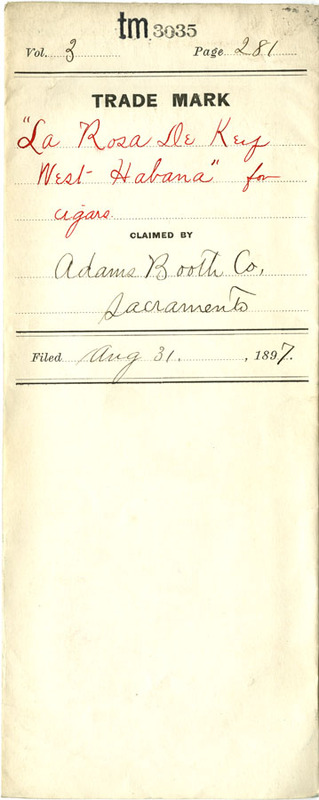 tm 3035
Vol. 3 Page 281
TRADE MARK
"La Rosa De Key
West Habana" for
cigars
CLAIMED BY
Adams Booth Co,
Sacramento
Filed Aug 31. , 1897.